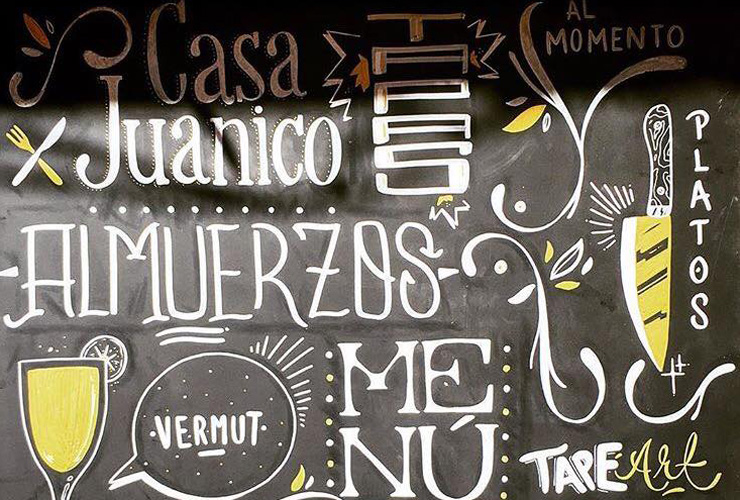 Casa
Juanico
AL
MOMENTO
PLATOS
ALMUERZOS
VERMUT
ME
NÚ
TAPE Art